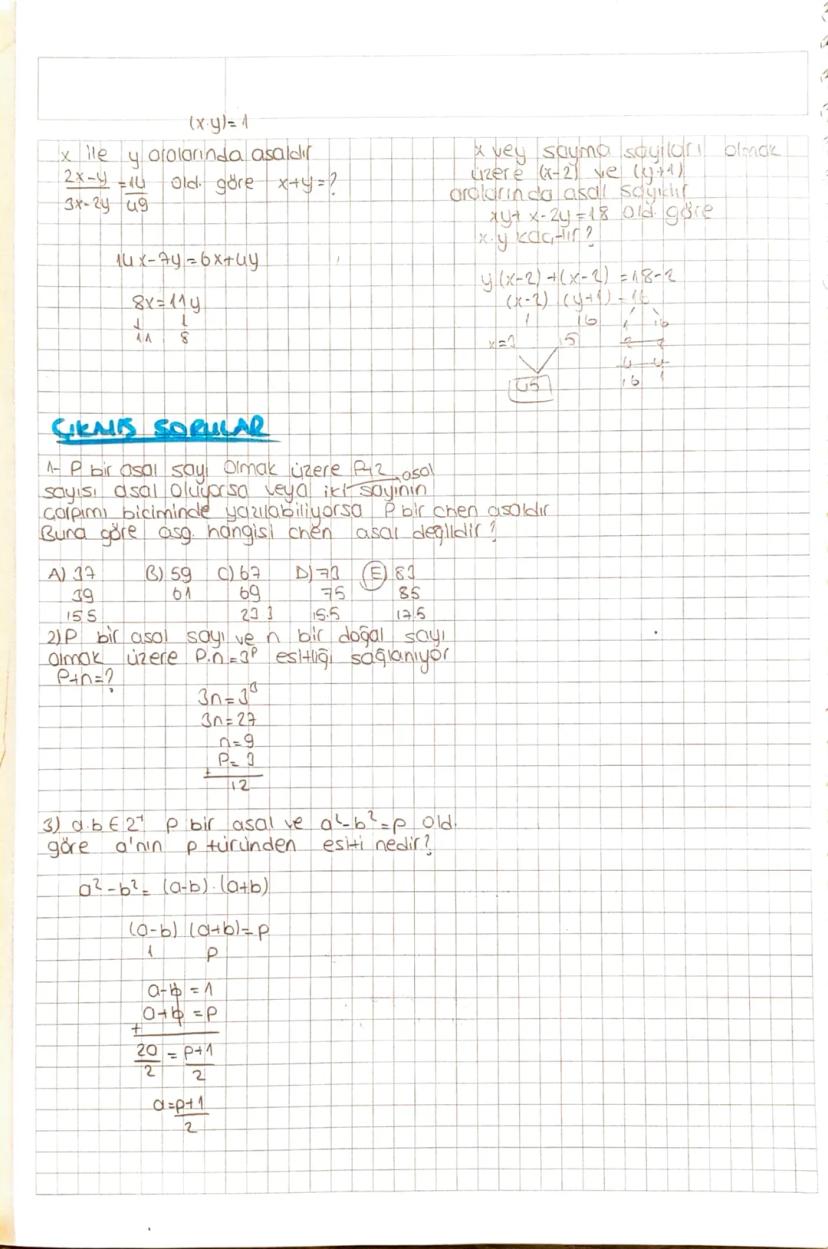 (x.y)=1
x ile y aralarında asaldır
2x-y/3x-2y = 14/49 old. göre x+y=?
14x-7y=6x+4y
8x=11y
↓ ↓
11 8
x ve y sayma sayıları olmak
üzere (x-2) ve (y+1)
aralarında asal sayıdır
xy+x-2y=18 old. göre
x.y kaçtır?
y(x-2)+(x-2)=18-2
(x-2) (y+1)=16
1 16 1 16
x=3 15 2
4 4
16 1
45
ÇIKMIŞ SORULAR
1- P bir asal sayı olmak üzere P+2 asal
sayısı asal oluyorsa veya iki sayının
çarpımı biçiminde yazılabiliyorsa P bir chen asaldır
Buna göre aşg. hangisi chen asal değildir?
A) 37 B) 59 C) 67 D) 73 E) 83
39 61 69 75 85
15.5 17.5
2) P bir asal sayı ve n bir doğal sayı
olmak üzere P.n=3ᵖ eşitliği sağlanıyor
P+n=?
3n=3³
3n=27
n=9
P=3
+
12
3) a.b ∈ 2⁺ p bir asal ve a²-b²=p old.
göre a'nın p türünden eşiti nedir?
a²-b²= (a-b).(a+b)
(a-b) (a+b)=p
1 p
a-b=1
a+b=p
+
2a/2 = p+1/2
a=p+1/2